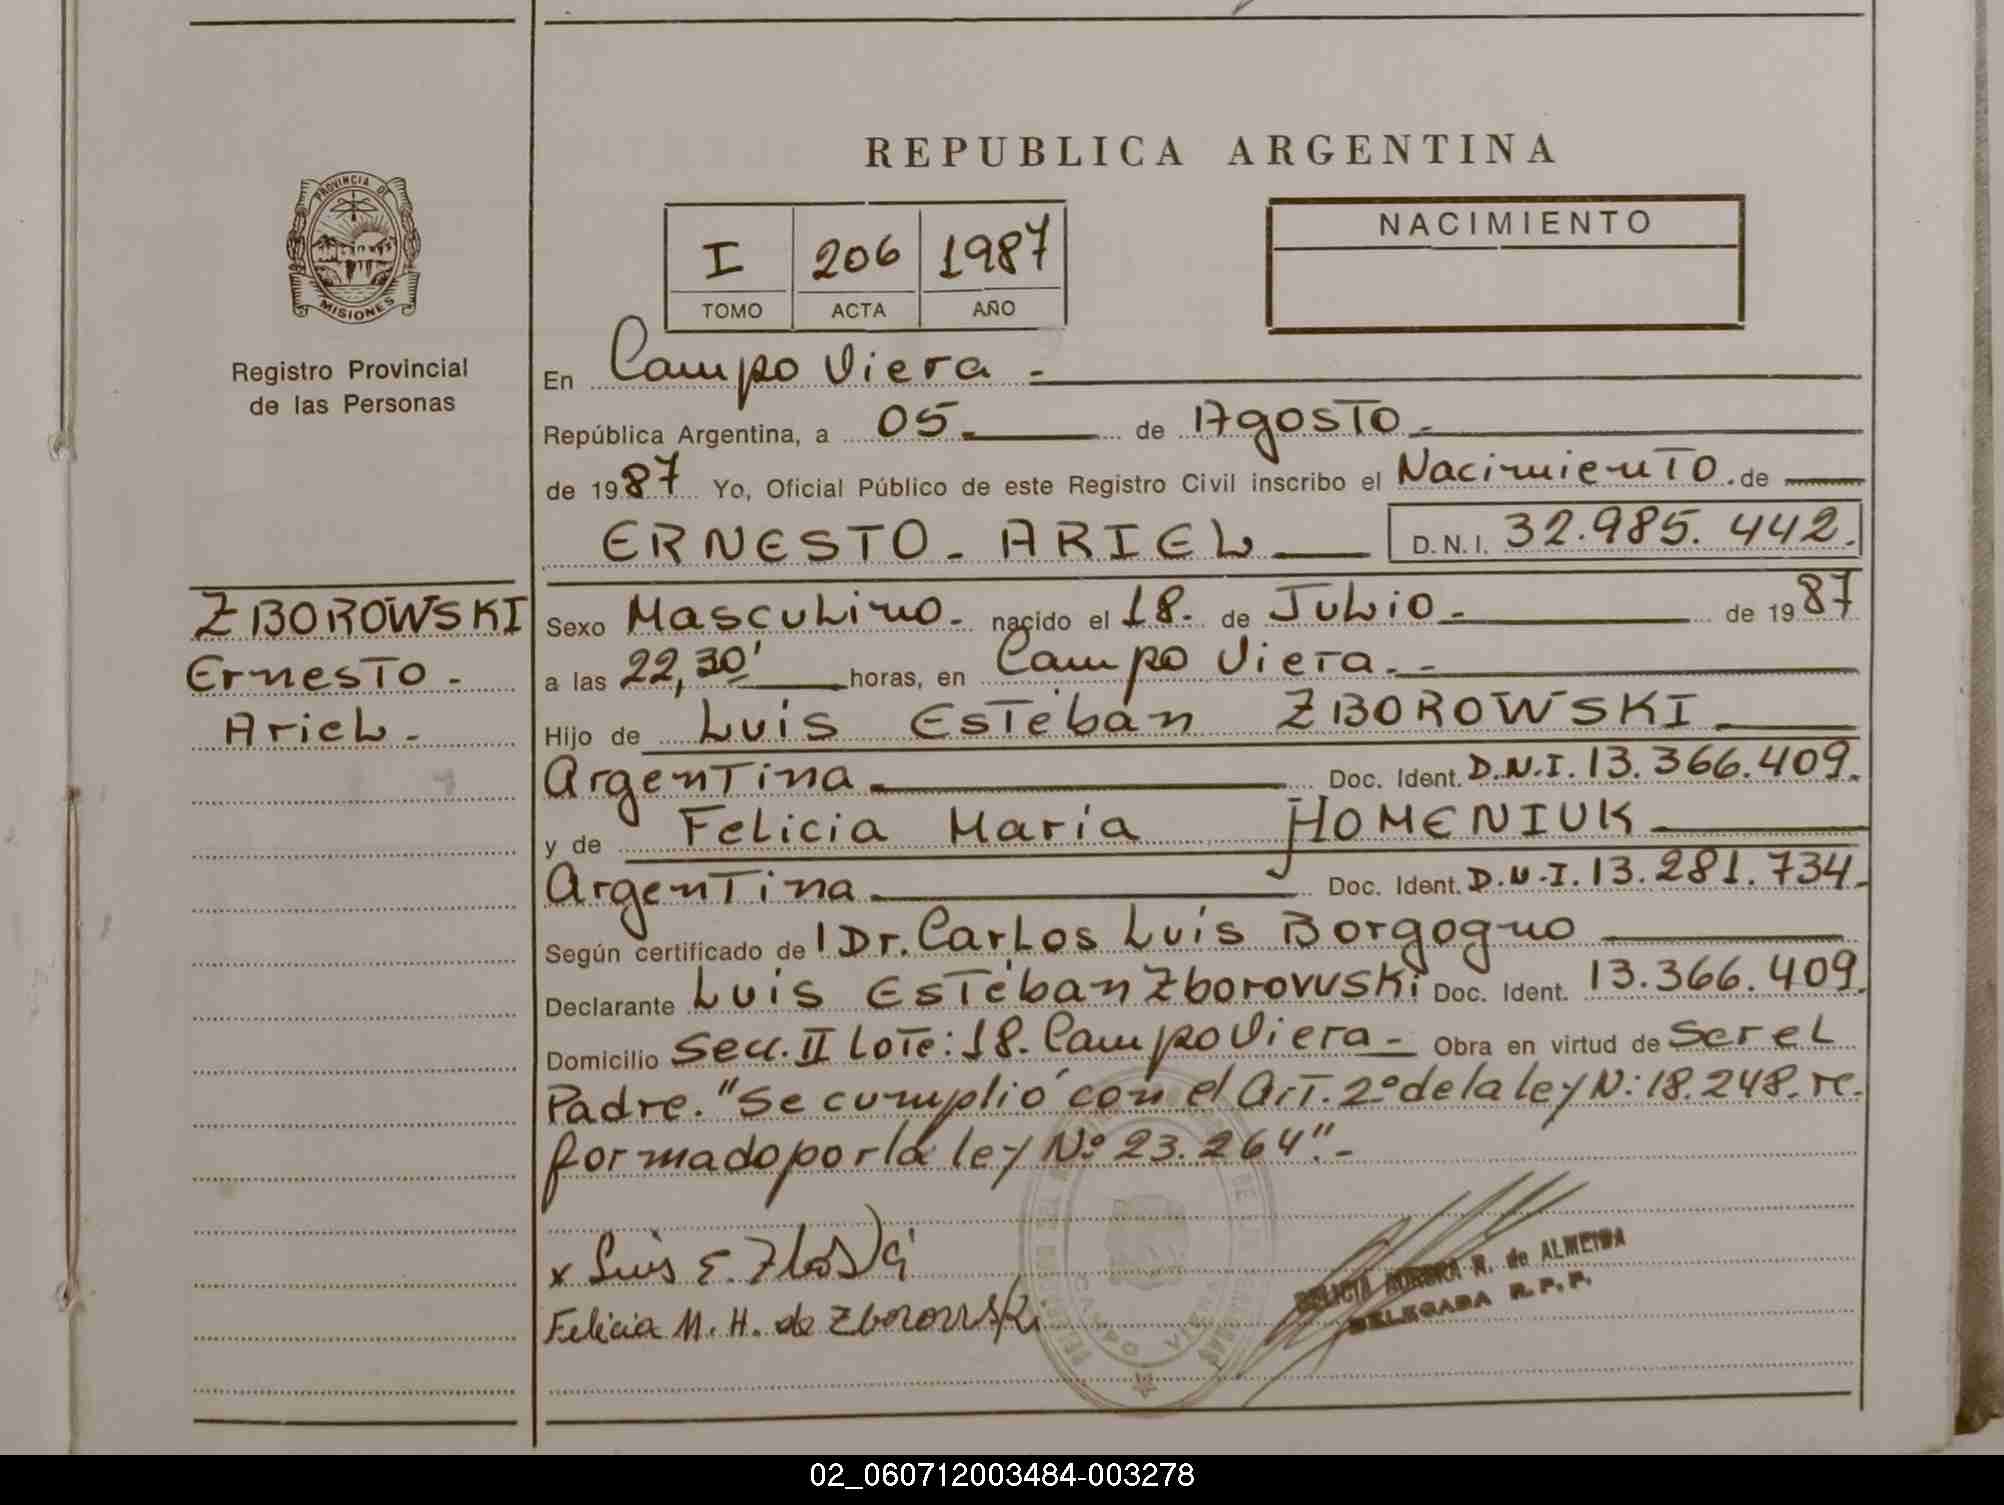 REPUBLICA ARGENTINA
PROVINCIA DE
MISIONES
Registro Provincial
de las Personas
I 206 1987
TOMO ACTA AÑO
NACIMIENTO
En Campo Viera -
República Argentina, a 05. de Agosto -
de 1987 Yo, Oficial Público de este Registro Civil inscribo el Nacimiento. de
ERNESTO - ARIEL D.N.I. 32.985.442.
ZBOROWSKI
Ernesto -
Ariel -
Sexo Masculino - nacido el 18. de Julio - de 1987
a las 22,30' horas, en Campo Viera. -
Hijo de Luis Esteban ZBOROWSKI -
Argentina Doc. Ident. D.N.I. 13.366.409.
y de Felicia María HOMENIUK
Argentina Doc. Ident. D.N.I. 13.281.734.
Según certificado de Dr. Carlos Luis Borgogno
Declarante Luis Esteban Zborowski Doc. Ident. 13.366.409.
Domicilio Secc. II Lote: 18. Campo Viera - Obra en virtud de Ser el
Padre. "Se cumplió con el Art. 2º de la ley N: 18.248. re-
formado por la ley Nº 23.264".-
x Luis E.
Felicia M. H. de Zborowski
R. de ALMEIDA
DELEGADA R. P. P.
02_060712003484-003278